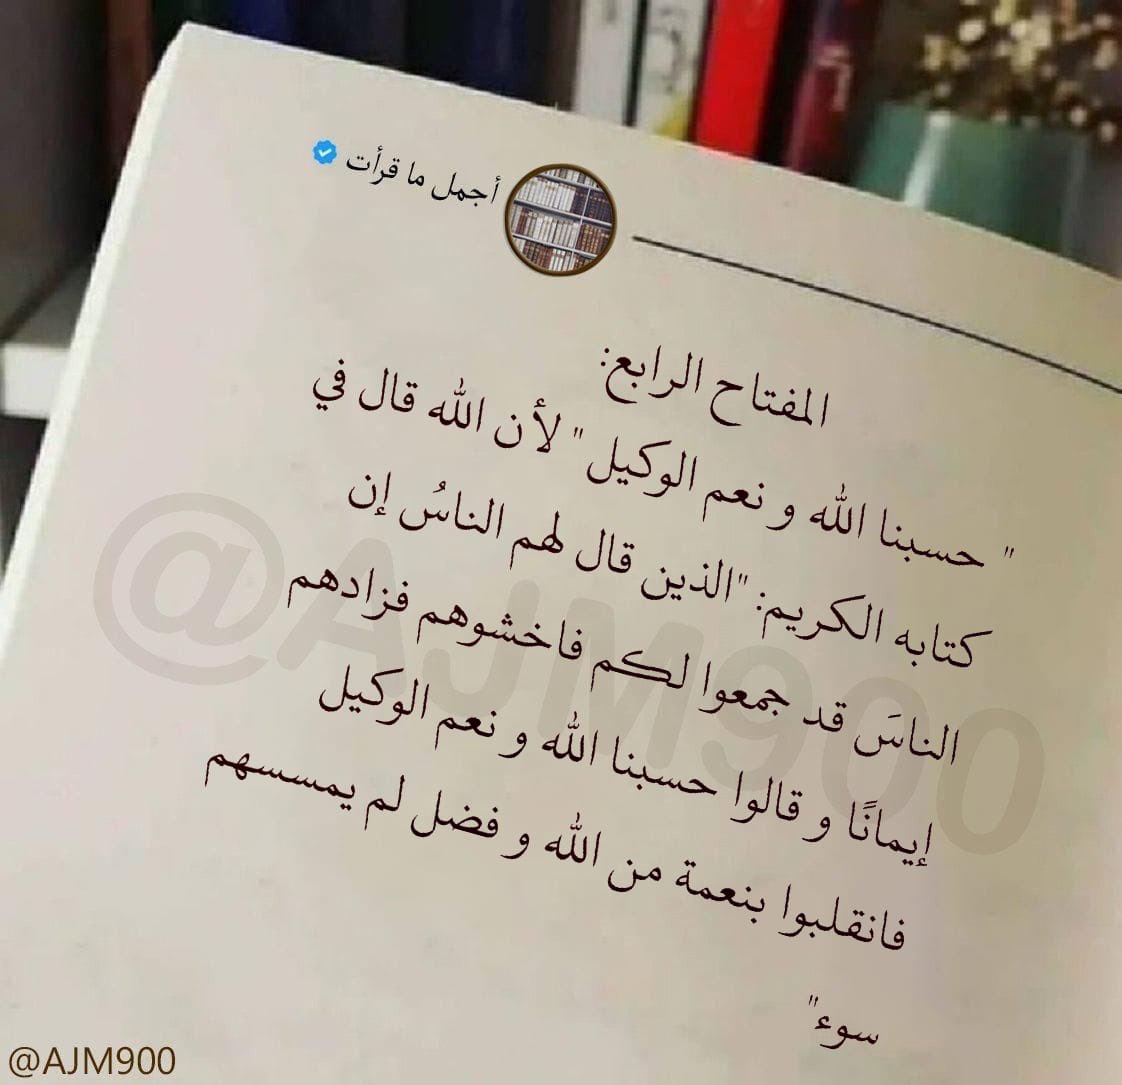 أجمل ما قرأت
المفتاح الرابع:
" حسبنا الله و نعم الوكيل " لأن الله قال في
كتابه الكريم: "الذين قال لهم الناسُ إن
الناسَ قد جمعوا لكم فاخشوهم فزادهم
إيمانًا و قالوا حسبنا الله و نعم الوكيل
فانقلبوا بنعمة من الله و فضل لم يمسسهم
سوء"
@AJM900
@AJM900